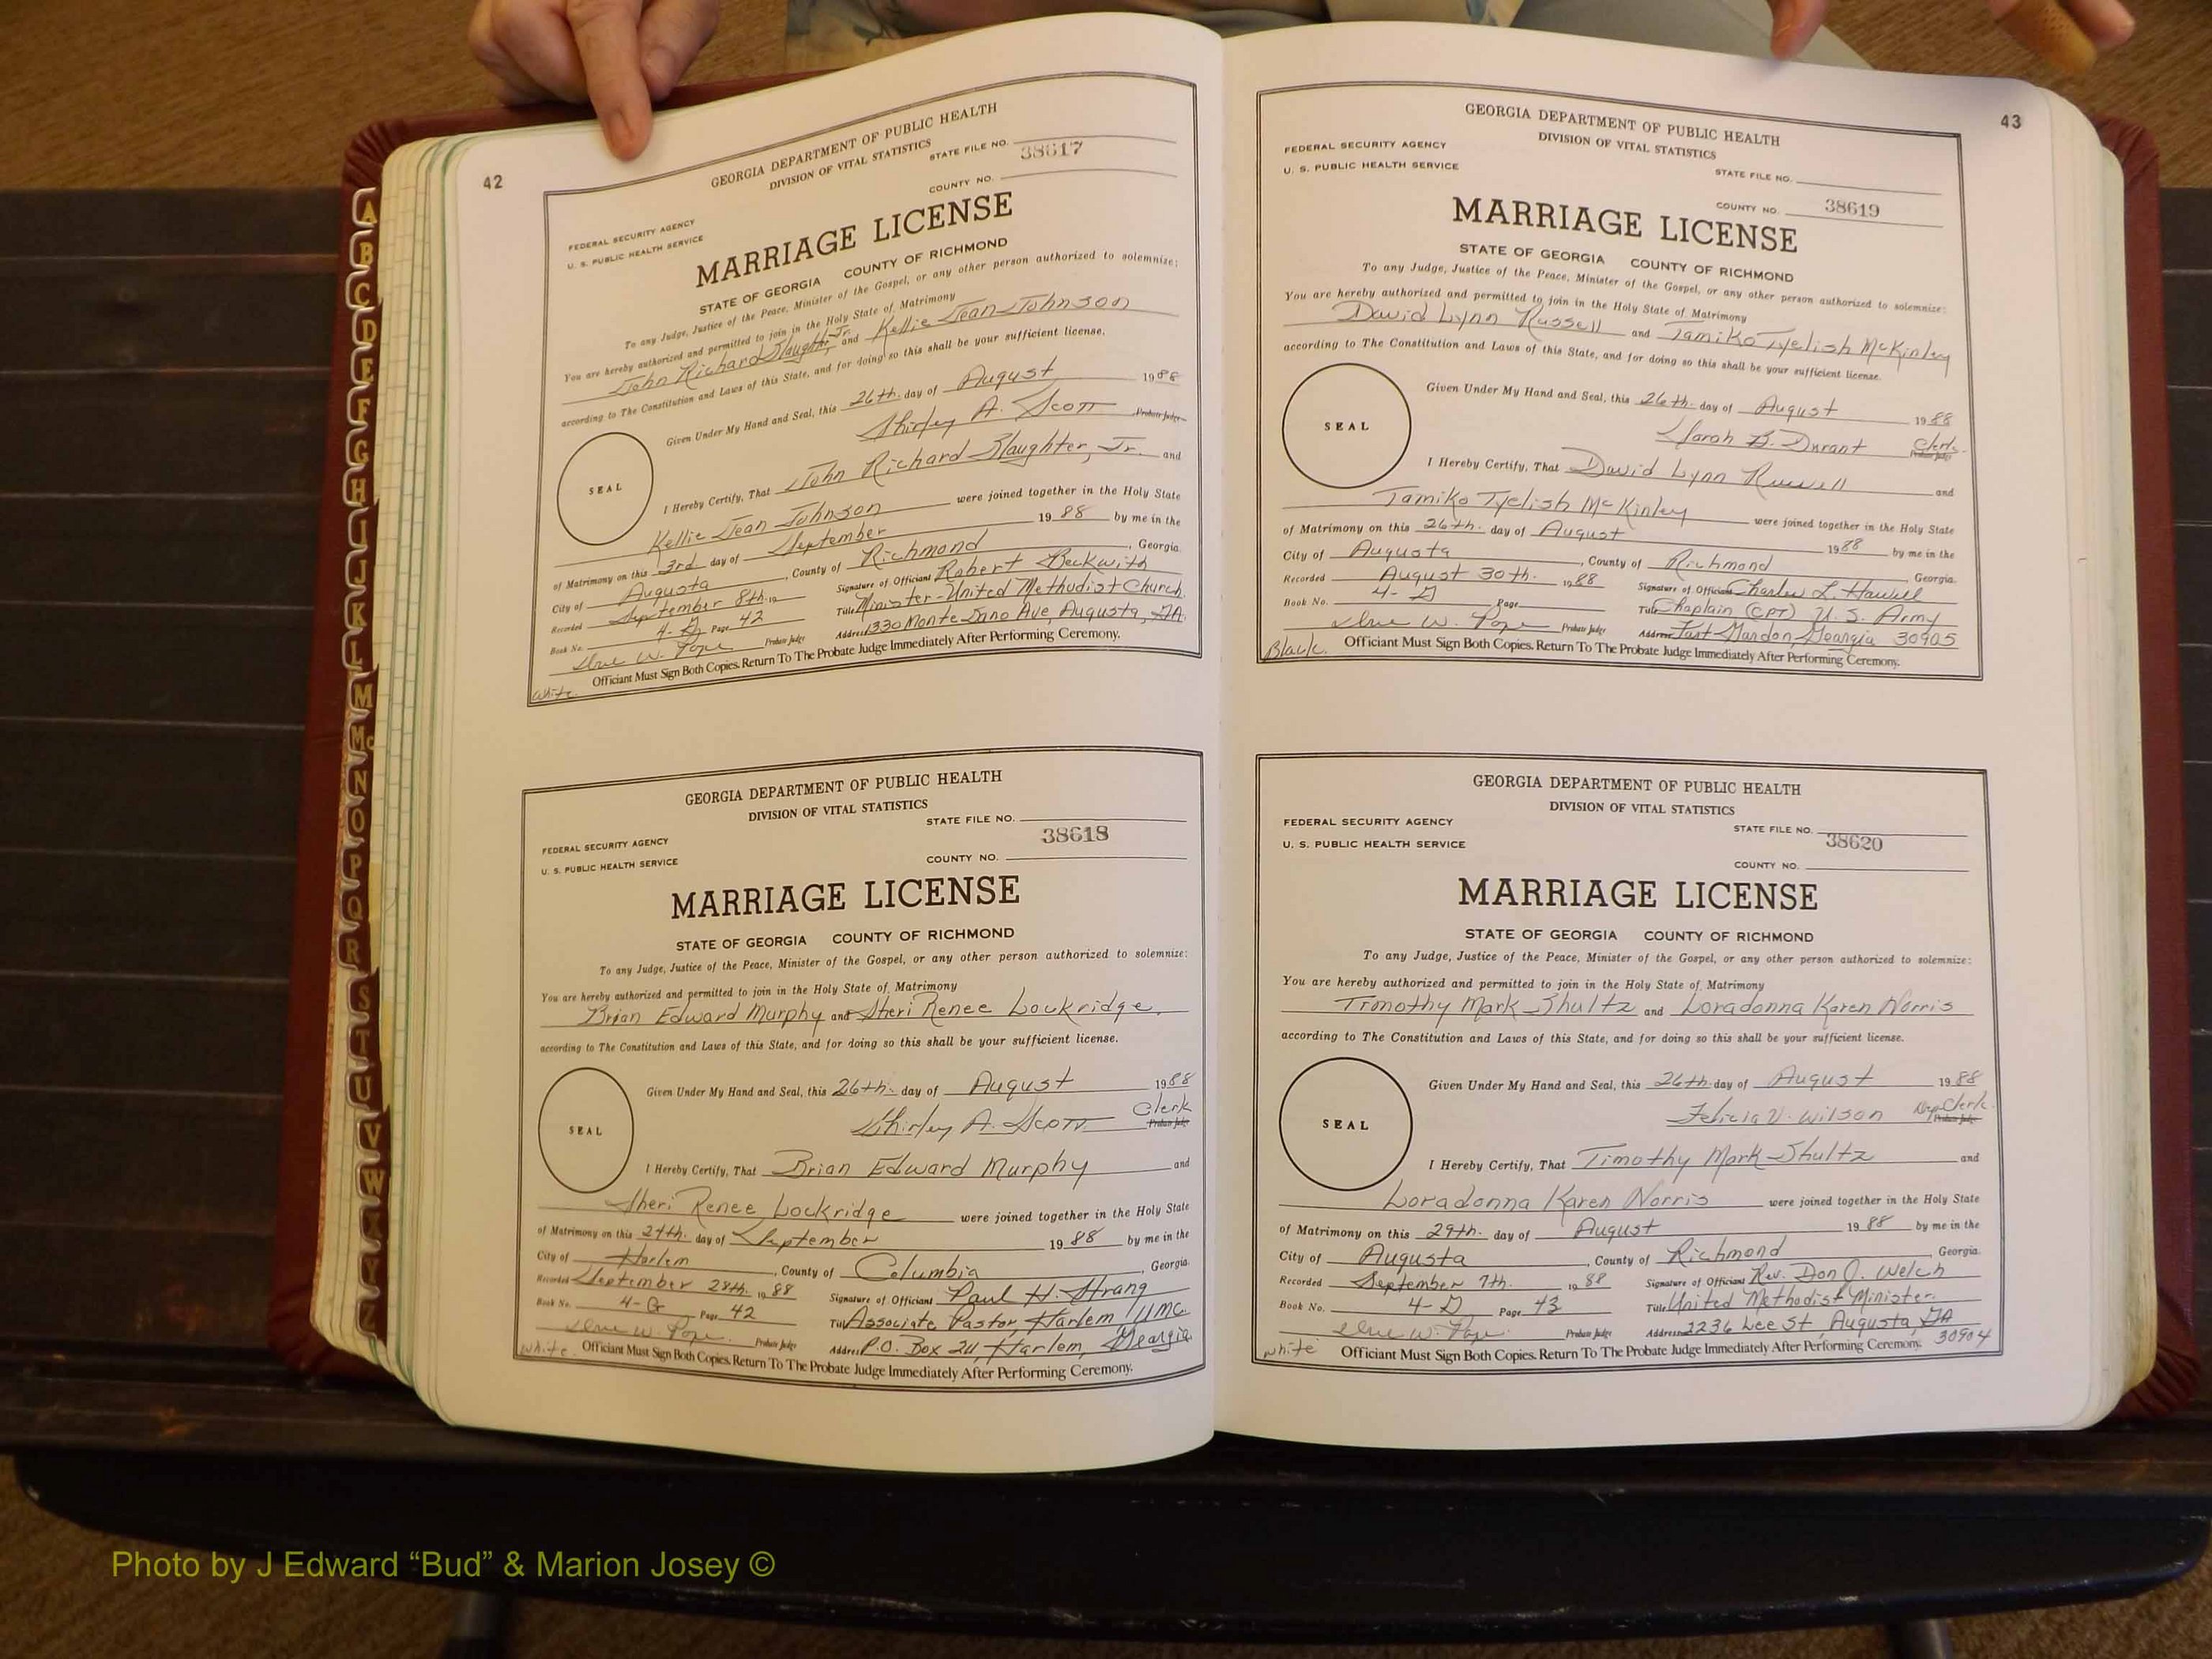 42
GEORGIA DEPARTMENT OF PUBLIC HEALTH
DIVISION OF VITAL STATISTICS
STATE FILE NO. 38617
COUNTY NO.
FEDERAL SECURITY AGENCY
U. S. PUBLIC HEALTH SERVICE
MARRIAGE LICENSE
STATE OF GEORGIA COUNTY OF RICHMOND
To any Judge, Justice of the Peace, Minister of the Gospel, or any other person authorized to solemnize;
You are hereby authorized and permitted to join in the Holy State of Matrimony
John Richard Slaughter, Jr. and Kellie Jean Johnson
according to The Constitution and Laws of this State, and for doing so this shall be your sufficient license.
Given Under My Hand and Seal, this 26th. day of August 1988
Shirley A. Scott Probate Judge
SEAL
I Hereby Certify, That John Richard Slaughter, Jr. and
Kellie Jean Johnson were joined together in the Holy State
of Matrimony on this 3rd day of September 1988 by me in the
City of Augusta, County of Richmond, Georgia.
Recorded September 8th. 19 Signature of Officiant Robert Beckwith
Book No. 4- Page 42 Title Minister-United Methodist Church
Probate Judge Address 1330 Monte Sano Ave, Augusta, GA.
Officiant Must Sign Both Copies. Return To The Probate Judge Immediately After Performing Ceremony.
White
GEORGIA DEPARTMENT OF PUBLIC HEALTH
DIVISION OF VITAL STATISTICS
STATE FILE NO.
38618
FEDERAL SECURITY AGENCY
U. S. PUBLIC HEALTH SERVICE
COUNTY NO.
MARRIAGE LICENSE
STATE OF GEORGIA COUNTY OF RICHMOND
To any Judge, Justice of the Peace, Minister of the Gospel, or any other person authorized to solemnize:
You are hereby authorized and permitted to join in the Holy State of Matrimony
Brian Edward Murphy and Sheri Renee Lockridge.
according to The Constitution and Laws of this State, and for doing so this shall be your sufficient license.
Given Under My Hand and Seal, this 26th. day of August 1988
Shirley A. Scott Clerk
Probate Judge
SEAL
I Hereby Certify, That Brian Edward Murphy and
Sheri Renee Lockridge were joined together in the Holy State
of Matrimony on this 24th. day of September 1988 by me in the
City of Harlem, County of Columbia, Georgia.
Recorded September 28th. 1988 Signature of Officiant Paul H. Strang
Book No. 4- Page 42 Title Associate Pastor, Harlem UMC.
Probate Judge Address P.O. Box 211, Harlem, Georgia
White Officiant Must Sign Both Copies. Return To The Probate Judge Immediately After Performing Ceremony.
43
GEORGIA DEPARTMENT OF PUBLIC HEALTH
DIVISION OF VITAL STATISTICS
FEDERAL SECURITY AGENCY
U. S. PUBLIC HEALTH SERVICE
STATE FILE NO.
COUNTY NO. 38619
MARRIAGE LICENSE
STATE OF GEORGIA COUNTY OF RICHMOND
To any Judge, Justice of the Peace, Minister of the Gospel, or any other person authorized to solemnize:
You are hereby authorized and permitted to join in the Holy State of Matrimony
David Lynn Russell and Tamiko Tyelish McKinley
according to The Constitution and Laws of this State, and for doing so this shall be your sufficient license.
Given Under My Hand and Seal, this 26th. day of August 1988
Sarah B. Durant Clerk
Probate Judge
SEAL
I Hereby Certify, That David Lynn Russell and
Tamiko Tyelish McKinley were joined together in the Holy State
of Matrimony on this 26th. day of August 1988 by me in the
City of Augusta, County of Richmond, Georgia.
Recorded August 30th. 1988 Signature of Officiant Charles L. Howell
Book No. 4- Page Title Chaplain (CPT) U. S. Army
Probate Judge Address Fort Gordon, Georgia 30905
Black. Officiant Must Sign Both Copies. Return To The Probate Judge Immediately After Performing Ceremony.
GEORGIA DEPARTMENT OF PUBLIC HEALTH
DIVISION OF VITAL STATISTICS
FEDERAL SECURITY AGENCY
U. S. PUBLIC HEALTH SERVICE
STATE FILE NO.
38620
COUNTY NO.
MARRIAGE LICENSE
STATE OF GEORGIA COUNTY OF RICHMOND
To any Judge, Justice of the Peace, Minister of the Gospel, or any other person authorized to solemnize:
You are hereby authorized and permitted to join in the Holy State of Matrimony
Timothy Mark Shultz and Loradonna Karen Norris
according to The Constitution and Laws of this State, and for doing so this shall be your sufficient license.
Given Under My Hand and Seal, this 26th. day of August 1988
Felicia V. Wilson Dep. Clerk
Probate Judge
SEAL
I Hereby Certify, That Timothy Mark Shultz and
Loradonna Karen Norris were joined together in the Holy State
of Matrimony on this 29th. day of August 1988 by me in the
City of Augusta, County of Richmond, Georgia.
Recorded September 7th. 1988 Signature of Officiant Rev. Don J. Welch
Book No. 4- Page 43 Title United Methodist Minister.
Probate Judge Address 2236 Lee St Augusta, GA
White Officiant Must Sign Both Copies. Return To The Probate Judge Immediately After Performing Ceremony. 30904
A
B
C
D
E
F
G
H
I
J
K
L
M
Mc
N
O
P
Q
R
S
T
U
V
W
X
Y
Z
Photo by J Edward “Bud” & Marion Josey ©